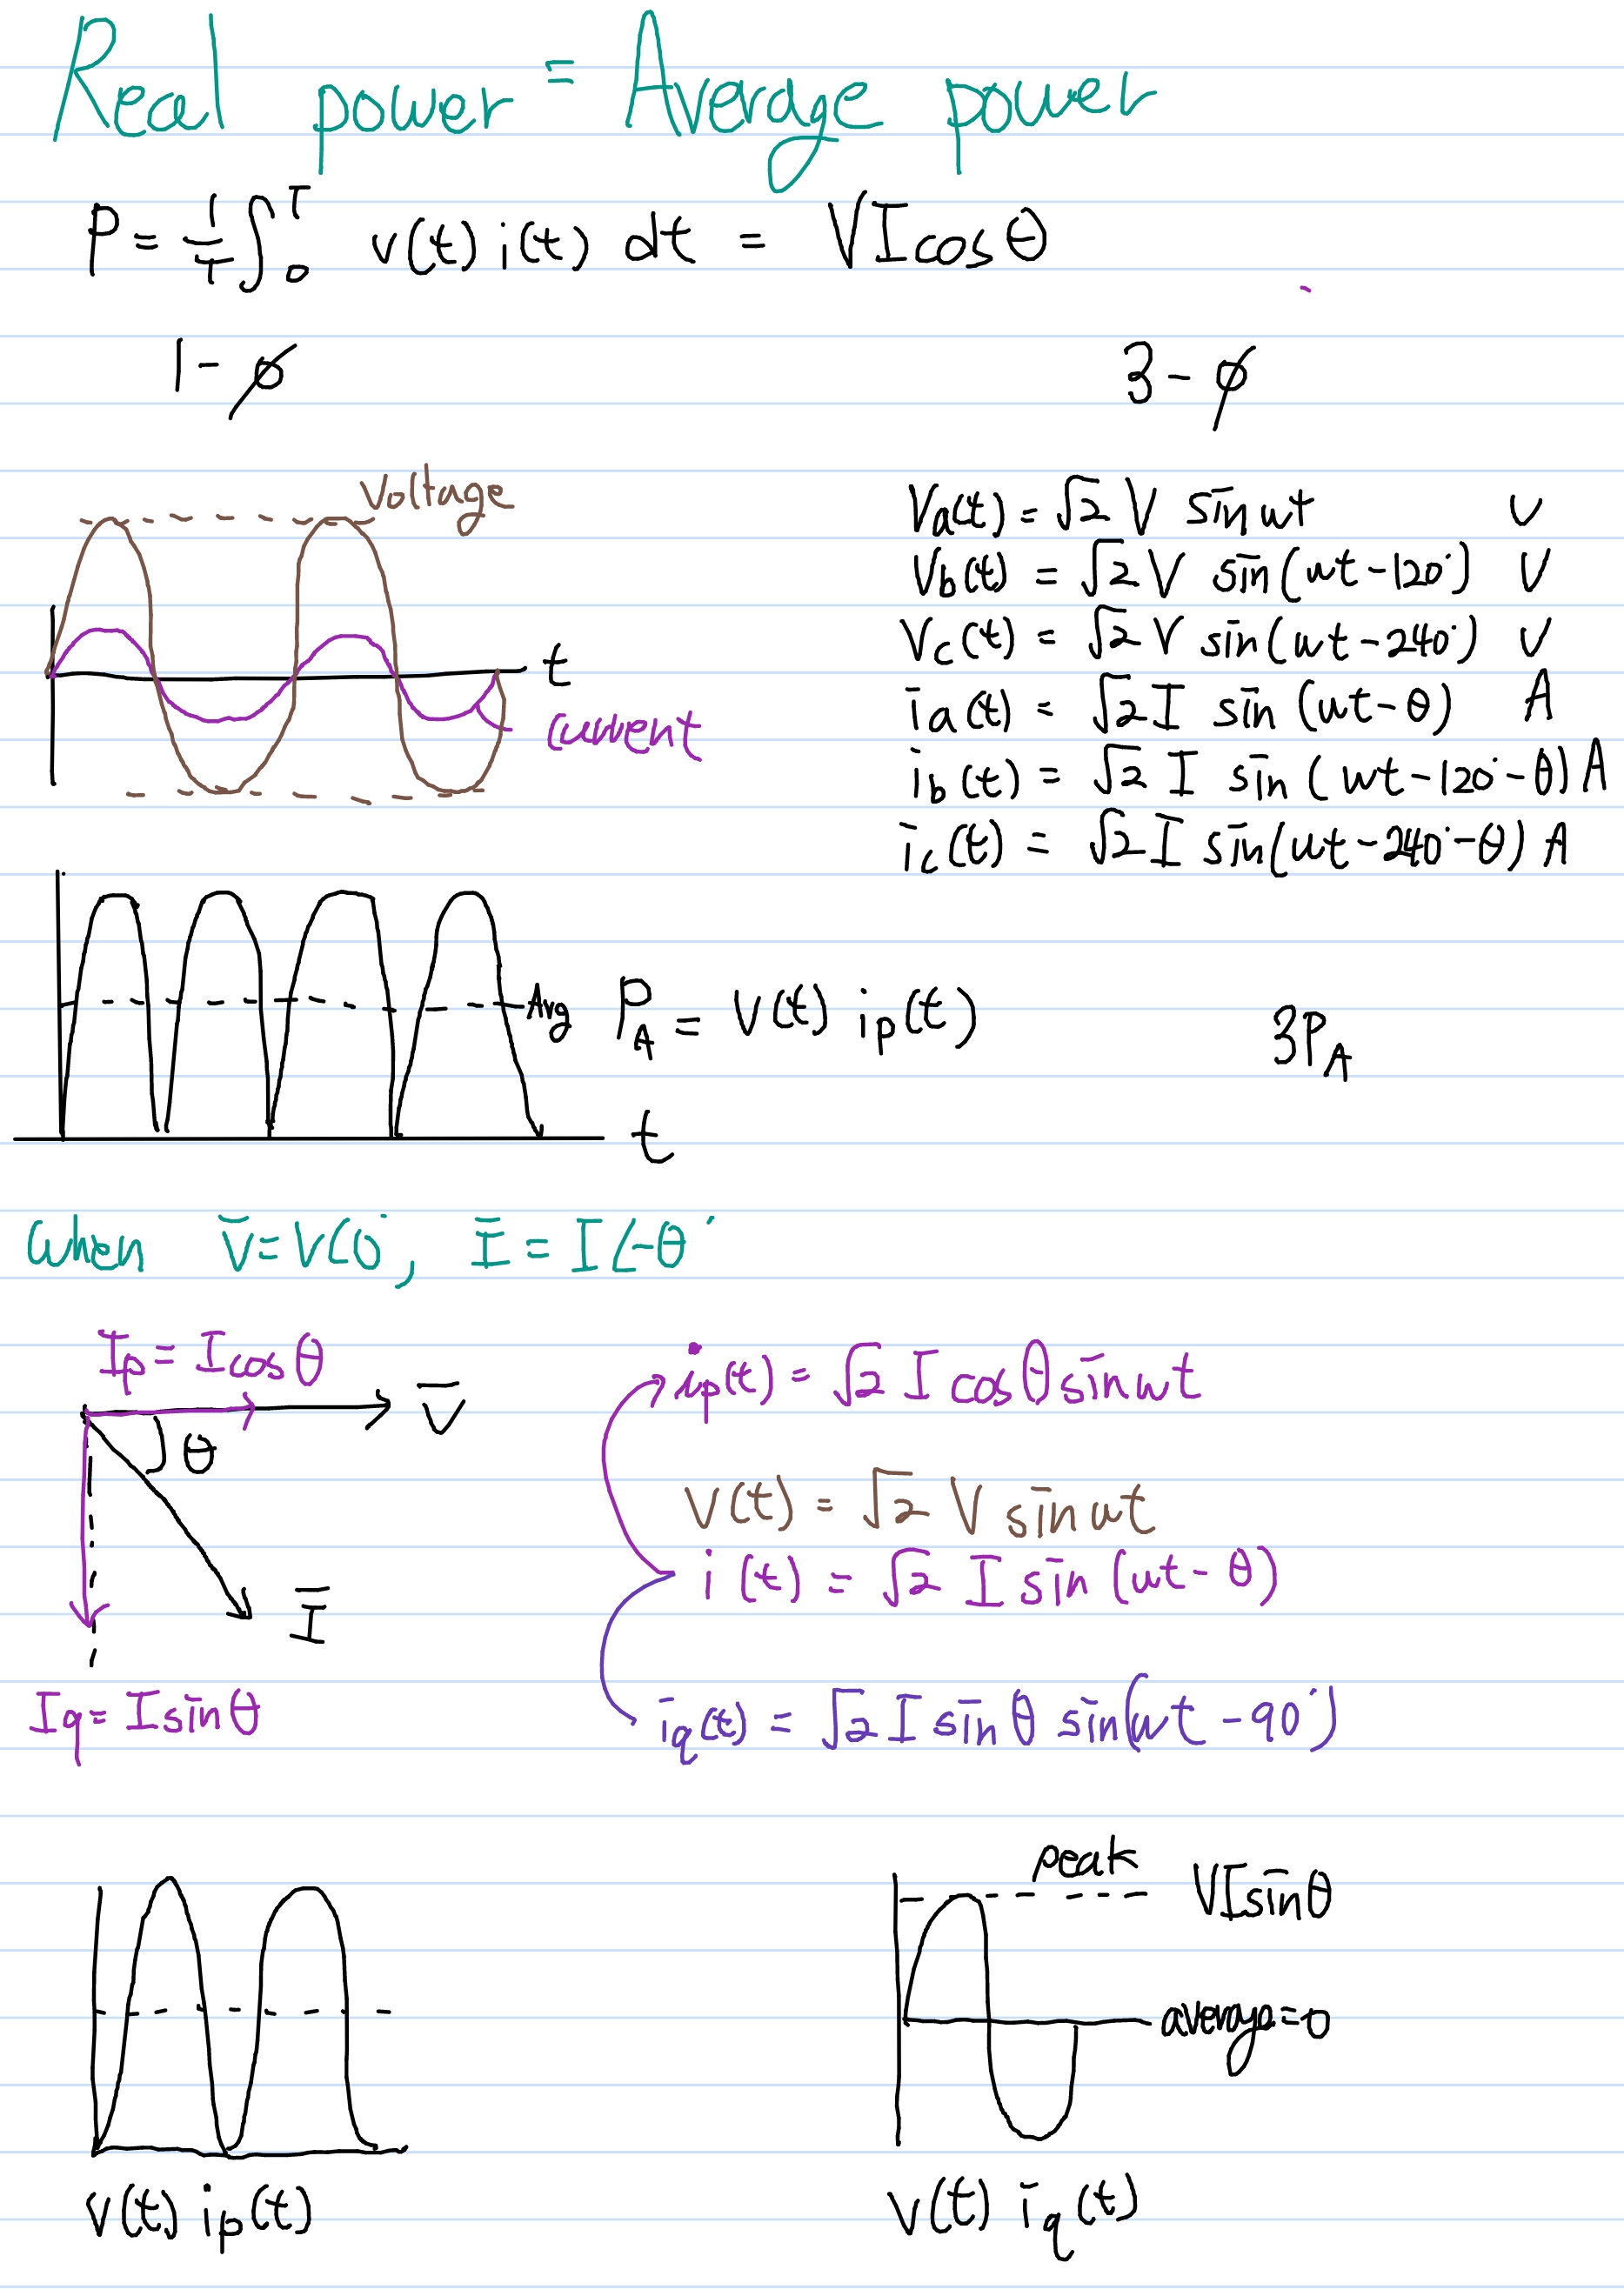 Real power = Average power
P = 1/T ∫₀ᵀ v(t) i(t) dt = VI cos θ
1-ϕ
3-ϕ
Voltage
t
current
Va(t) = √2 V sin ωt V
Vb(t) = √2 V sin(ωt-120°) V
Vc(t) = √2 V sin(ωt-240°) V
ia(t) = √2 I sin(ωt-θ) A
ib(t) = √2 I sin(ωt-120°-θ) A
ic(t) = √2 I sin(ωt-240°-θ) A
Avg
P_A = v(t) ip(t)
3P_A
t
when V̄=V∠0°, Ī=I∠-θ°
Ip = I cos θ
V̄
θ
Ī
Iq = I sin θ
ip(t) = √2 I cos θ sin ωt
v(t) = √2 V sin ωt
i(t) = √2 I sin(ωt-θ)
iq(t) = √2 I sin θ sin(ωt-90°)
v(t) ip(t)
peak VI sin θ
average=0
v(t) iq(t)